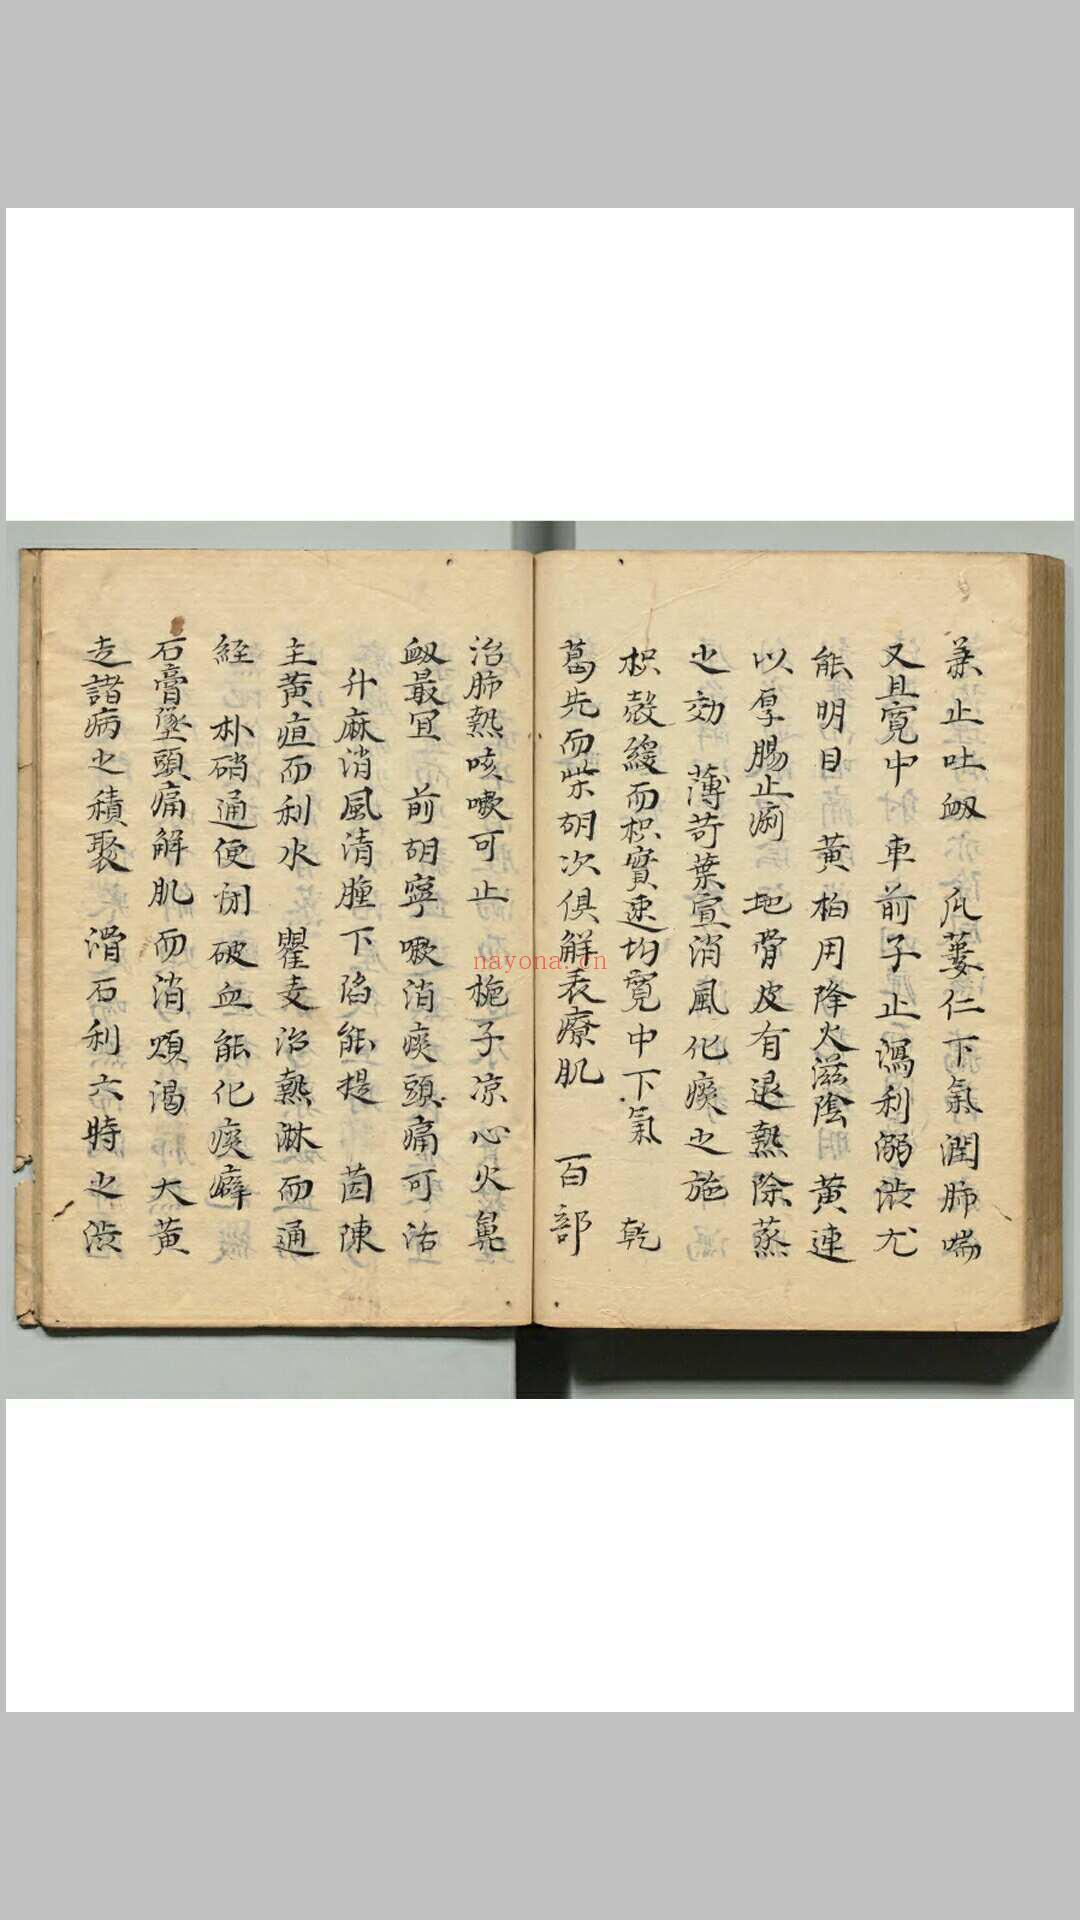 兼止吐衂 瓜蔞仁下氣潤肺喘
又且寬中 車前子止瀉利溺渋尤
能明目 黄柏用降火滋陰 黄連
以厚腸止痢 地骨皮有退熱除蒸
之効 薄苛葉宣消風化痰之施
枳殼緩而枳實速均寬中下氣 乾
葛先而柴胡次俱解表療肌 百部
治肺熱咳嗽可止 梔子凉心火鼻
衂最冝 前胡寧嗽消痰頭痛可治
升麻消風清腫下陷能提 茵陳
主黄疸而利水 瞿麦治熱淋而通
經 朴硝通便閉破血能化痰癖
石膏墜頭痛解肌而消煩渴 大黄
走諸病之積聚 滑石利六時之渋
nayona.cn